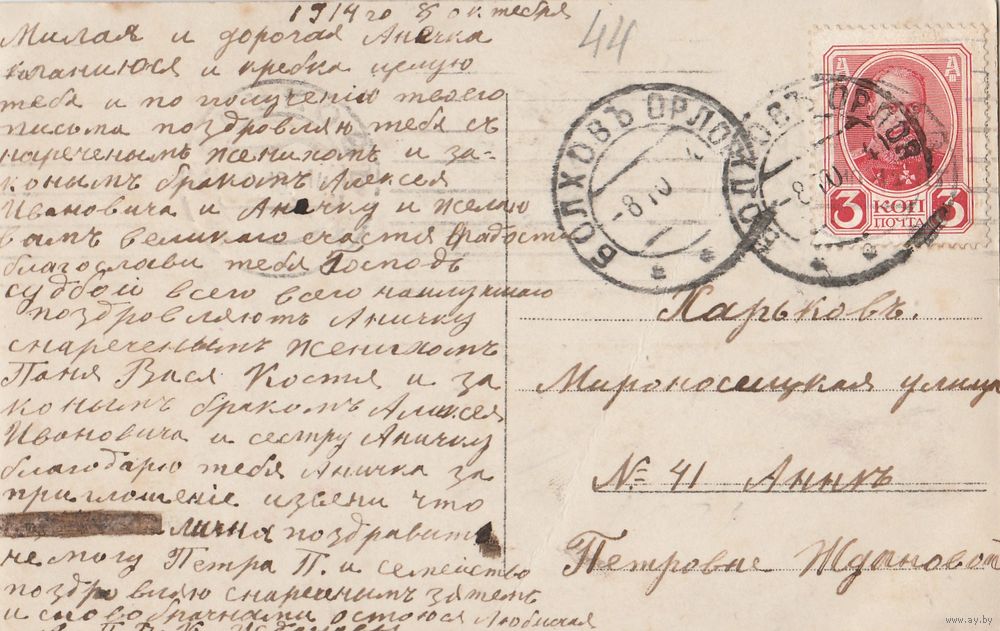 1914 го 8 октебря
Милая и дорогая Аничка
кланиюся и крепка целую
тебя и по получению твоего
письма поздровляю тебя съ
нареченымъ женихомъ и за-
конымъ бракомъ Алексея
Ивановича и Аничку и желаю
вамъ великаго счастя и радости
благослави тебя Господь
судбой всего всего наилучшаго
поздровляютъ Аничку
снареченымъ женихомъ
Паня Вася Костя и за
конымъ бракомъ Алексея
Ивановича и сестру Аничку
благодарю тебя Аничка за
приглошеніе извени что
лична поздравить
не могу Петра П. и семейство
поздровляю снареченымъ зятемъ
и сново брачнами остоюся Любящая
44
БОЛХОВЪ ОРЛОВ
-8 10
БОЛХОВЪ ОРЛОВ
-8 10
3 КОП 3
ПОЧТА
Харьковъ.
Мироносецкая улица
№ 41 Аннѣ
Петровне Ждановой
www.ay.by